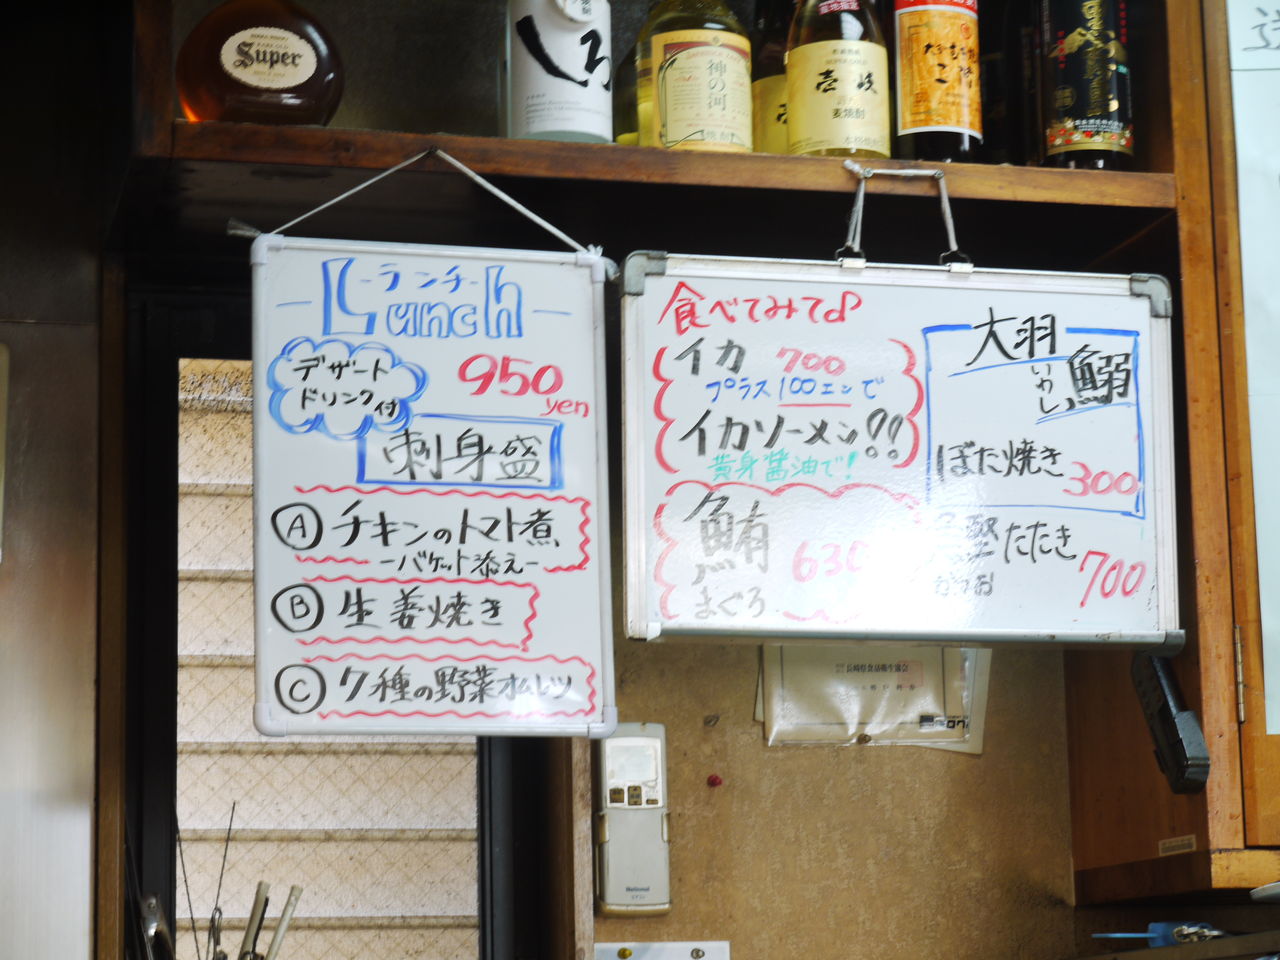 Super
しろ
神の河
焼酎
壱岐
麦焼酎
SUPER GOLD
ランチ
Lunch
デザート
ドリンク付
950
yen
刺身盛
Ⓐ チキンのトマト煮
ーバケット添えー
Ⓑ 生姜焼き
Ⓒ 7種の野菜オムレツ
食べてみて♪
イカ 700
プラス100エンで
イカソーメン!!
黄身醤油で!
鮪 630
まぐろ
大羽
鰯
いわし
ぼた焼き
300
鰹たたき
かつお
700
長崎県食品衛生協会
National